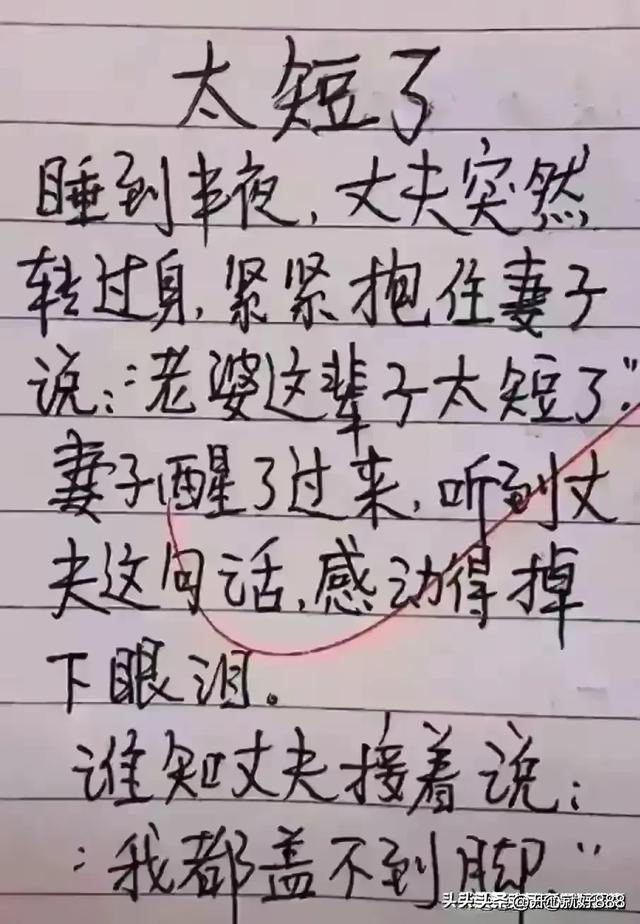 太短了
睡到半夜，丈夫突然
转过身，紧紧抱住妻子
说：“老婆这辈子太短了”
妻子醒了过来，听到丈
夫这句话，感动得掉
下眼泪。
谁知丈夫接着说：
“我都盖不到脚。”
头条@开心就好888